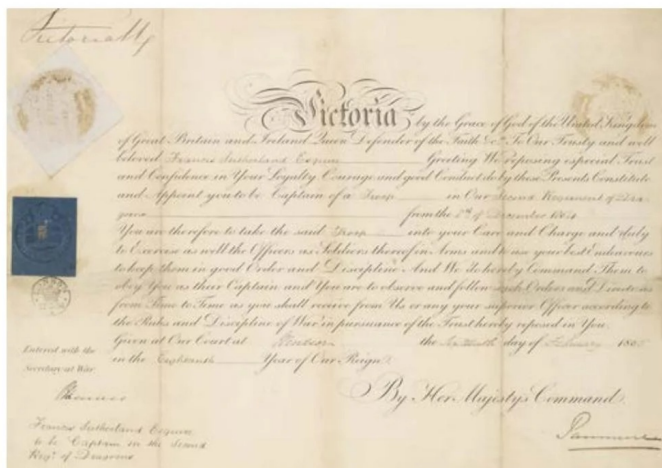 Victoria R
Victoria by the Grace of God of the United Kingdom
of Great Britain and Ireland Queen Defender of the Faith &c. To Our Trusty and well
beloved Francis Sutherland Esquire Greeting We reposing especial Trust
and Confidence in Your Loyalty Courage and good Conduct do by these Presents Constitute
and Appoint you to be Captain of a Troop in Our Second Regiment of Dra
goons from the 8th of December 1854
You are therefore to take the said Troop into your Care and Charge and duly
to Exercise as well the Officers as Soldiers thereof in Arms and to use your best Endeavours
to keep them in good Order and Discipline And We do hereby Command Them to
obey You as their Captain and You are to observe and follow such Orders and Directions
from Time to Time as you shall receive from Us or any your superior Officer according to
the Rules and Discipline of War in pursuance of the Trust hereby reposed in You
Given at Our Court at Windsor the day of February 185
in the Eighteenth Year of Our Reign
By Her Majestys Command
Panmure
Entered with the
Secretary at War
Francis Sutherland Esquire
to be Captain in the Second
Regt. of Dragoons